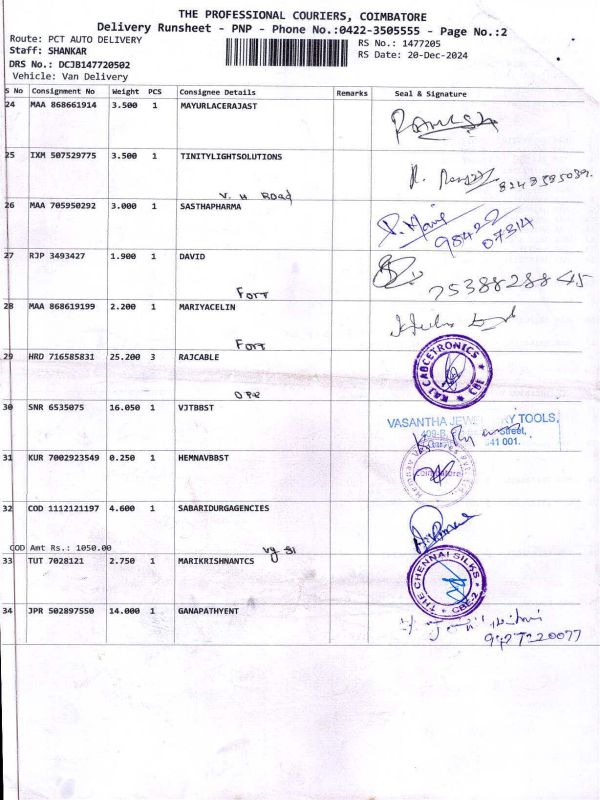 THE PROFESSIONAL COURIERS, COIMBATORE
Delivery Runsheet - PNP - Phone No.:0422-3505555 - Page No.:2
Route: PCT AUTO DELIVERY
RS No.: 1477205
Staff: SHANKAR
RS Date: 20-Dec-2024
DRS No.: DCJB147720502
Vehicle: Van Delivery
S No Consignment No Weight PCS Consignee Details Remarks Seal & Signature
24 MAA 868661914 3.500 1 MAYURLACERAJAST
25 IXM 507529775 3.500 1 TINITYLIGHTSOLUTIONS
V. H Road
26 MAA 705950292 3.000 1 SASTHAPHARMA
98422
07314
27 RJP 3493427 1.900 1 DAVID
7538828845
Fort
28 MAA 868619199 2.200 1 MARIYACELIN
Fort
29 HRD 716585831 25.200 3 RAJCABLE
RAJ CABCETRONICS CBE
30 SNR 6535075 16.050 1 VJTBBST
VASANTHA TOOLS,
Street,
641 001.
31 KUR 7002923549 0.250 1 HEMNAVBBST
32 COD 1112121197 4.600 1 SABARIDURGAGENCIES
COD Amt Rs.: 1050.00
33 TUT 7028121 2.750 1 MARIKRISHNANTCS
THE CHENNAI SILKS CBE-2
34 JPR 502897550 14.000 1 GANAPATHYENT